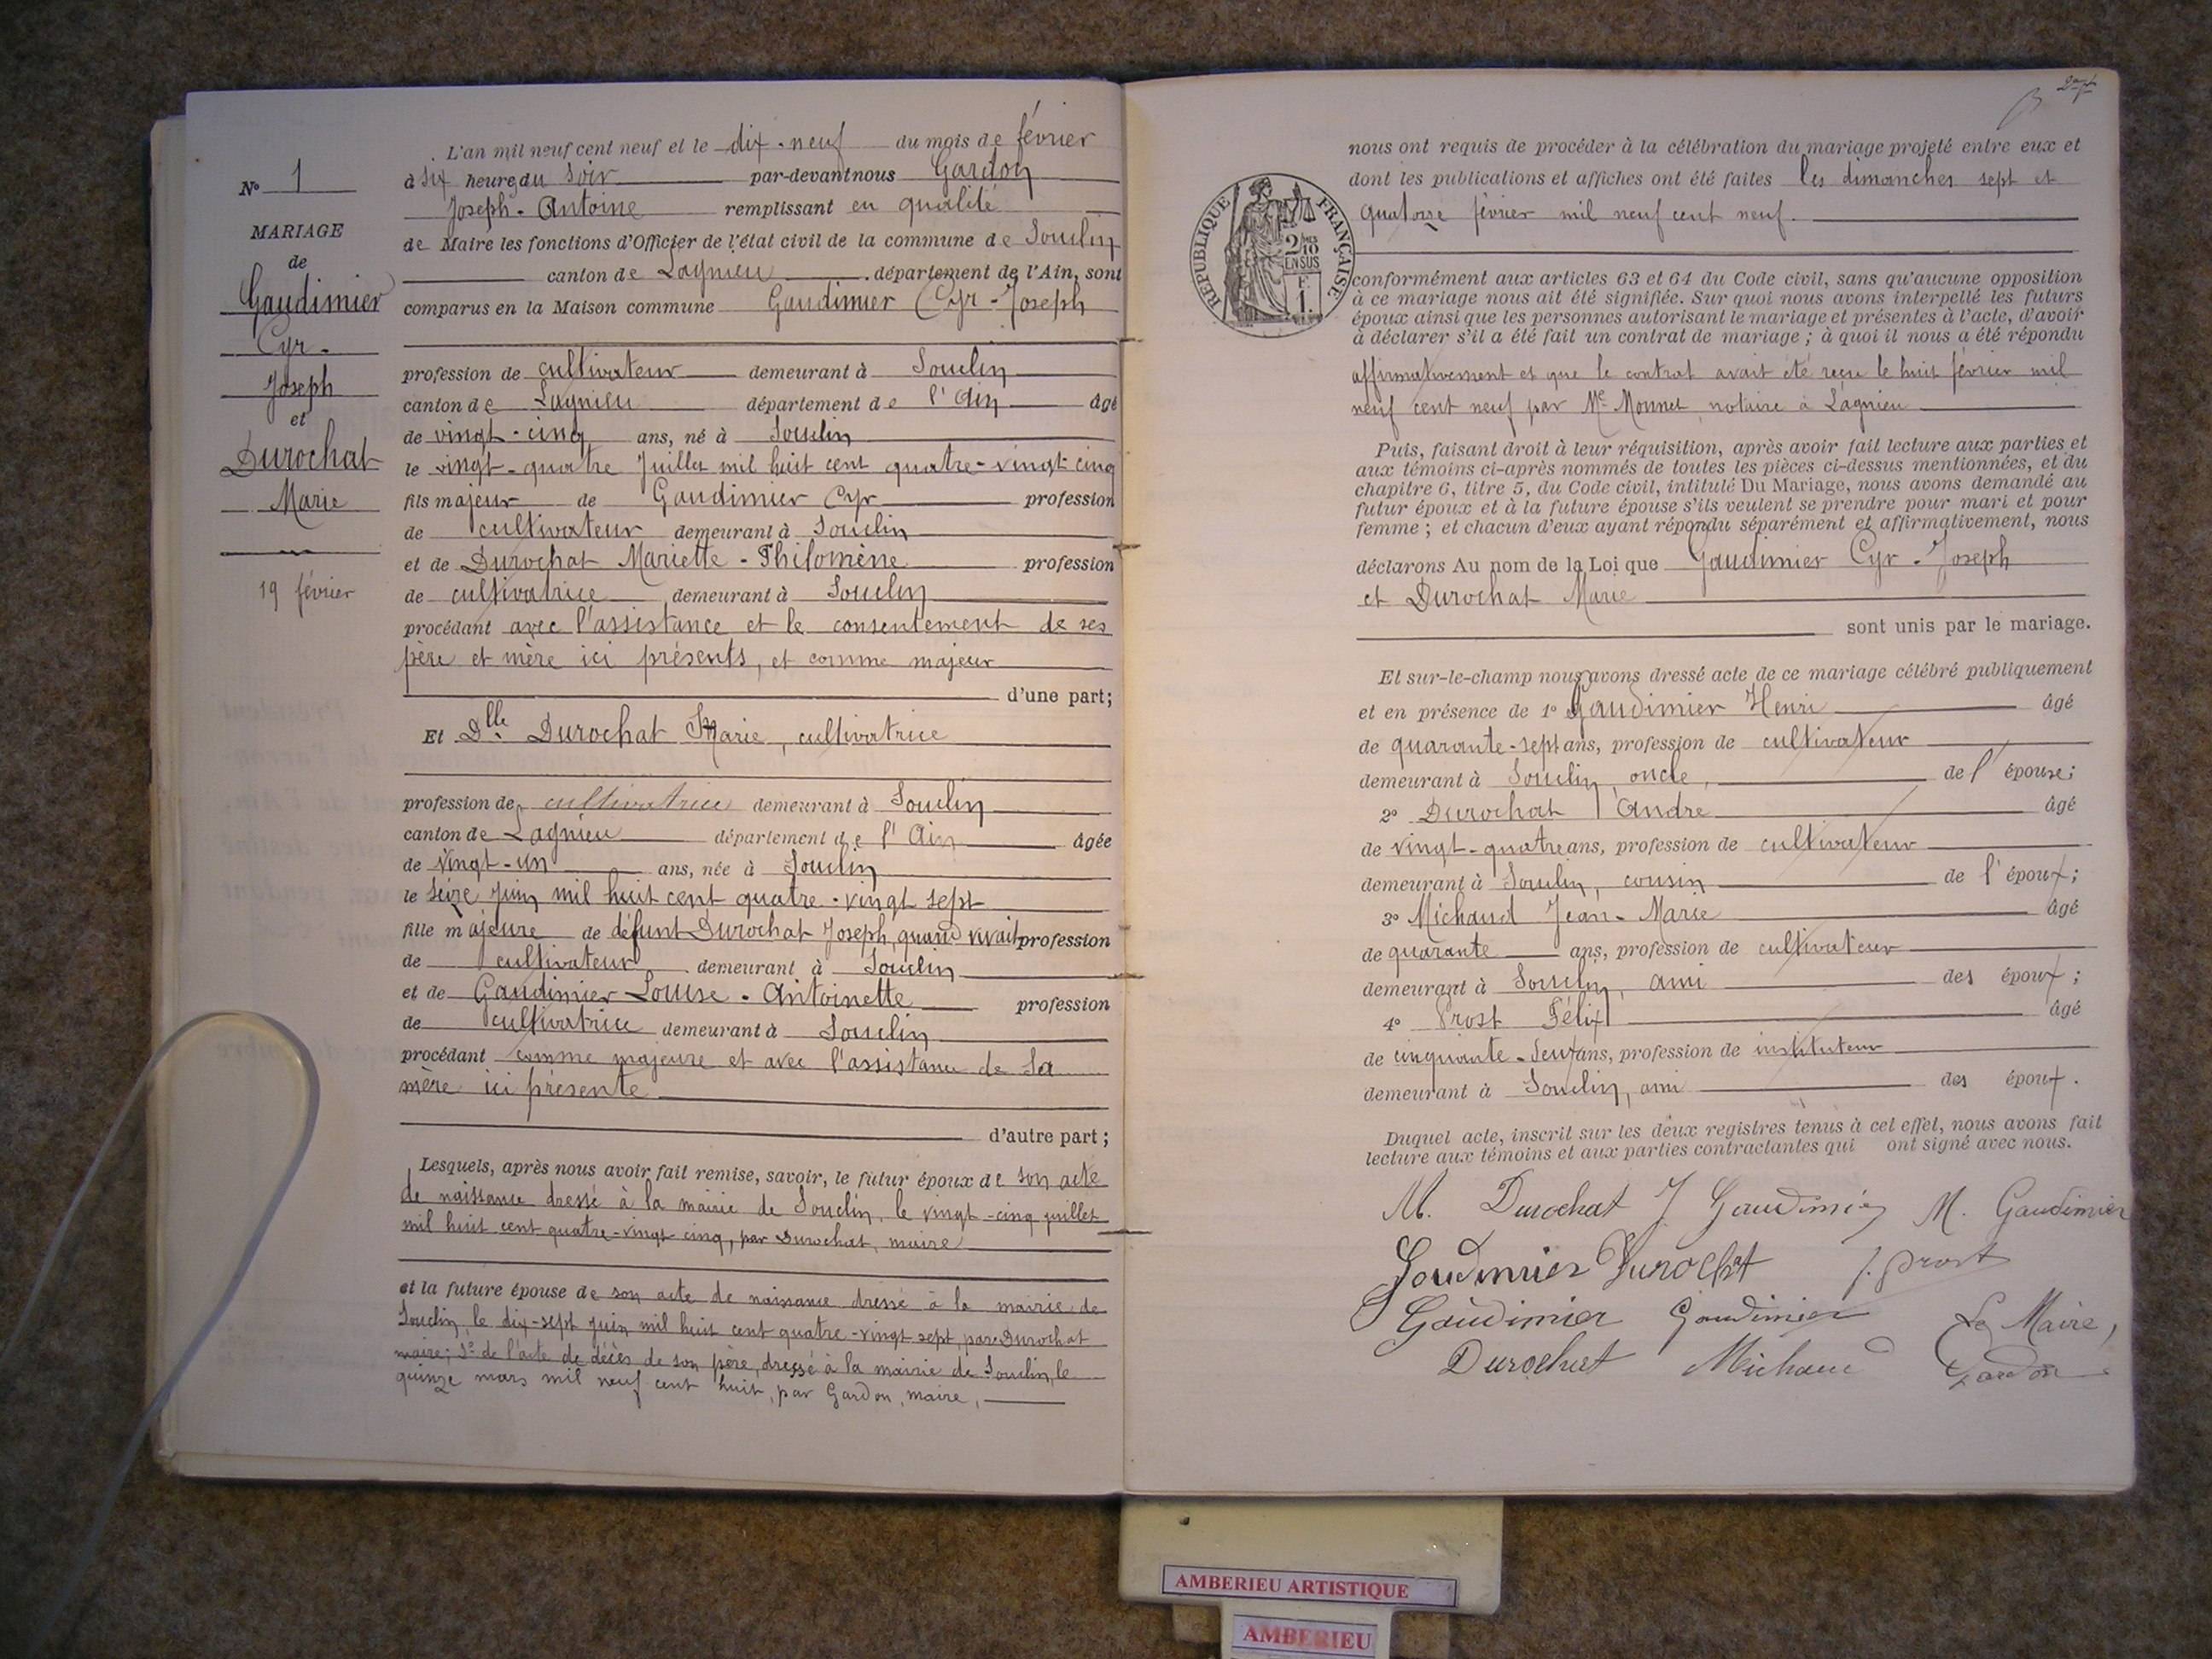 N° 1
MARIAGE
de
Gaudimier
Cyr-
Joseph
et
Durochat
Marie
19 février
L'an mil neuf cent neuf et le dix-neuf du mois de février
à six heures du soir par-devant nous Gardon
Joseph-Antoine remplissant en qualité
de Maire les fonctions d'Officier de l'état civil de la commune de Souclin
canton de Lagnieu département de l'Ain, sont
comparus en la Maison commune Gaudimier Cyr-Joseph
profession de cultivateur demeurant à Souclin
canton de Lagnieu département de l'Ain âgé
de vingt-cinq ans, né à Souclin
le vingt-quatre Juillet mil huit cent quatre-vingt cinq
fils majeur de Gaudimier Cyr profession
de cultivateur demeurant à Souclin
et de Durochat Mariette-Philomène profession
de cultivatrice demeurant à Souclin
procédant avec l'assistance et le consentement de ses
père et mère ici présents, et comme majeur
d'une part;
Et Dlle Durochat Marie, cultivatrice
profession de cultivatrice demeurant à Souclin
canton de Lagnieu département de l'Ain âgée
de vingt-un ans, née à Souclin
le seize Juin mil huit cent quatre-vingt sept
fille majeure de défunt Durochat Joseph, quand vivait profession
de cultivateur demeurant à Souclin
et de Gaudimier Louise-Antoinette profession
de cultivatrice demeurant à Souclin
procédant comme majeure et avec l'assistance de sa
mère ici présente
d'autre part;
Lesquels, après nous avoir fait remise, savoir, le futur époux de son acte
de naissance dressé à la mairie de Souclin, le vingt-cinq juillet
mil huit cent quatre-vingt cinq, par Durochat, maire
et la future épouse de son acte de naissance dressé à la mairie de
Souclin, le dix-sept juin mil huit cent quatre-vingt sept, par Durochat
maire; 2° de l'acte de décès de son père, dressé à la mairie de Souclin, le
quinze mars mil neuf cent huit, par Gardon, maire,
RÉPUBLIQUE FRANÇAISE
2/10
EN SUS
F.
1.
nous ont requis de procéder à la célébration du mariage projeté entre eux et
dont les publications et affiches ont été faites les dimanches sept et
quatorze février mil neuf cent neuf.
conformément aux articles 63 et 64 du Code civil, sans qu'aucune opposition
à ce mariage nous ait été signifiée. Sur quoi nous avons interpellé les futurs
époux ainsi que les personnes autorisant le mariage et présentes à l'acte, d'avoir
à déclarer s'il a été fait un contrat de mariage; à quoi il nous a été répondu
affirmativement et que le contrat avait été reçu le huit février mil
neuf cent neuf par Me Monnet, notaire à Lagnieu
Puis, faisant droit à leur réquisition, après avoir fait lecture aux parties et
aux témoins ci-après nommés de toutes les pièces ci-dessus mentionnées, et du
chapitre 6, titre 5, du Code civil, intitulé Du Mariage, nous avons demandé au
futur époux et à la future épouse s'ils veulent se prendre pour mari et pour
femme; et chacun d'eux ayant répondu séparément et affirmativement, nous
déclarons Au nom de la Loi que Gaudimier Cyr-Joseph
et Durochat Marie
sont unis par le mariage.
Et sur-le-champ nous avons dressé acte de ce mariage célébré publiquement
et en présence de 1° Gaudimier Henri âgé
de quarante-sept ans, profession de cultivateur
demeurant à Souclin, oncle, de l'épouse;
2° Durochat André âgé
de vingt-quatre ans, profession de cultivateur
demeurant à Souclin, cousin de l'époux;
3° Michaud Jean-Marie âgé
de quarante ans, profession de cultivateur
demeurant à Souclin, ami des époux;
4° Prost Félix âgé
de cinquante-deux ans, profession de instituteur
demeurant à Souclin, ami des époux.
Duquel acte, inscrit sur les deux registres tenus à cet effet, nous avons fait
lecture aux témoins et aux parties contractantes qui ont signé avec nous.
M. Durochat J Gaudimier M. Gaudimier
Gaudimier Durochat f. prost
Gaudimier Gaudimier Le Maire,
Durochat Michaud Gardon
AMBERIEU ARTISTIQUE
AMBERIEU